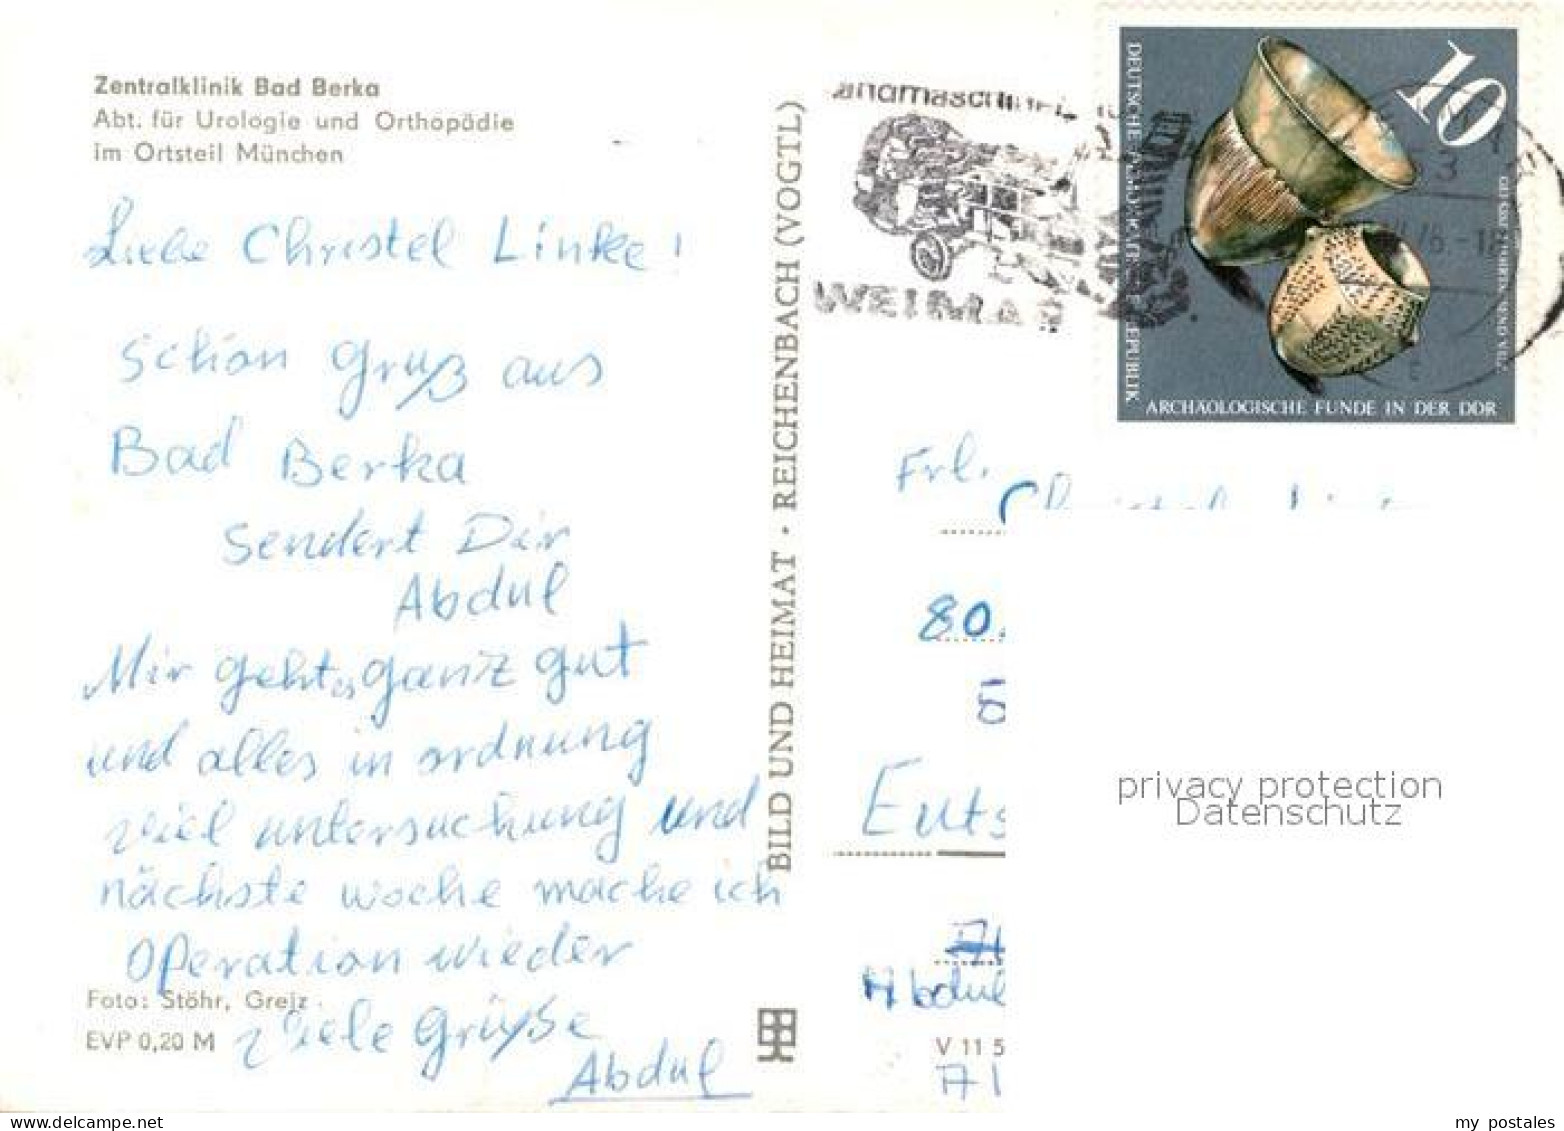 Zentralklinik Bad Berka
Abt. für Urologie und Orthopädie
im Ortsteil München
Liebe Christel Linke!
Schön Gruß aus
Bad Berka
sendert Dir
Abdul
Mir geht, ganz gut
und alles in ordnung
viel untersuchung und
nächste woche mache ich
Operation wieder
Viele Grüße
Abdul
Foto: Stöhr, Greiz
EVP 0,20 M
BILD UND HEIMAT · REICHENBACH (VOGTL)
WEIMAR
DEUTSCHE DEMOKRATISCHE REPUBLIK
10
ARCHÄOLOGISCHE FUNDE IN DER DDR
Frl.
80.
Euts
Abdul
V 11 5
71
privacy protection
Datenschutz
my postales